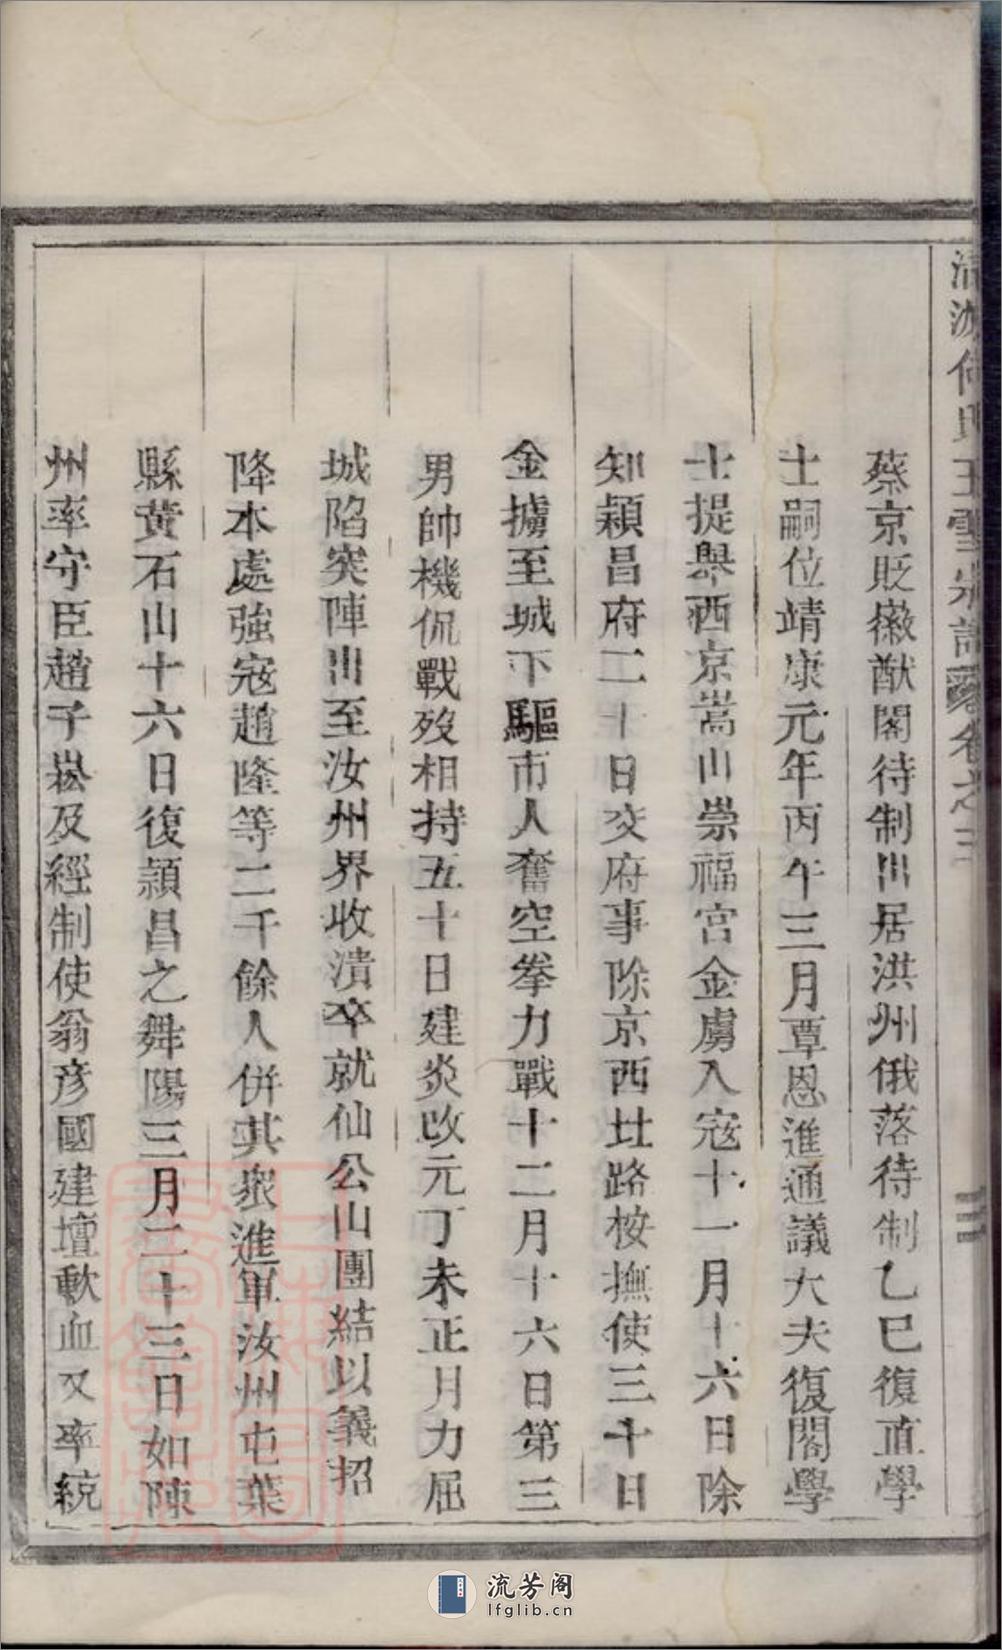 蔡京貶徽猷閣待制出居洪州俄落待制乙巳復直學
士嗣位靖康元年丙午三月覃恩進通議大夫復閣學
士提舉西京嵩山崇福宮金虜入寇十一月十六日除
知潁昌府二十日交府事除京西北路按撫使三十日
金擄至城下驅市人奮空拳力戰十二月十六日第三
男帥機侃戰歿相持五十日建炎改元丁未正月力屈
城陷突陣出至汝州界收潰卒就仙公山團結以義招
降本處強寇趙隆等二千餘人併其眾進軍汝州屯葉
縣黃石山十六日復潁昌之舞陽三月二十三日如陳
州率守臣趙子崧及經制使翁彥國建壇歃血又率統
何氏玉雪宗譜 卷之三
三
流芳閣
lfglib.cn